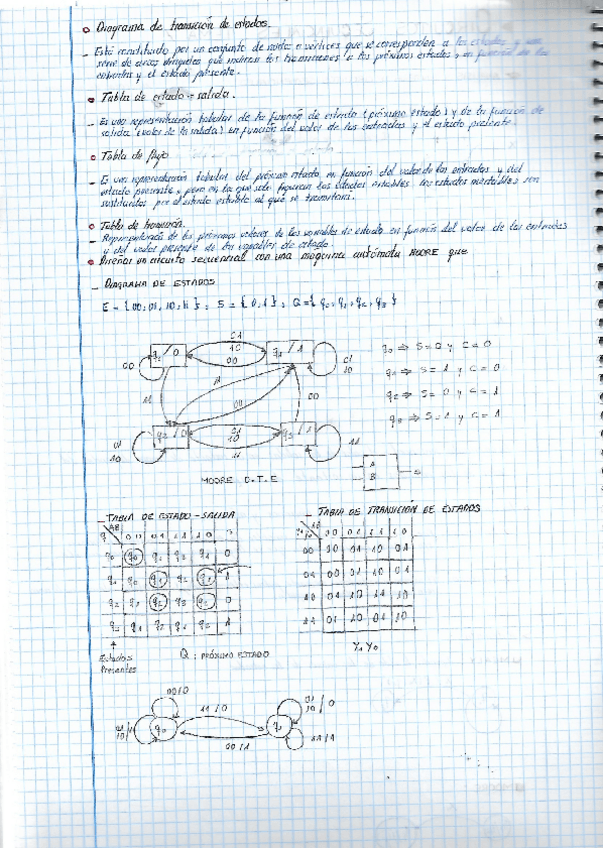 Diagrama de transición de estados.
- Está constituido por un conjunto de nodos o vértices que se corresponden a los estados y una
serie de arcos dirigidos que indican las transiciones a los próximos estados, en función de las
entradas y el estado presente.
Tabla de estado-salida.
- Es una representación tabular de la función de estado (próximo estado) y de la función de
salida (valor de la salida) en función del valor de las entradas y el estado presente.
Tabla de flujo
- Es una representación tabular del próximo estado en función del valor de las entradas y del
estado presente, pero en la que solo figuran los estados estables. los estados inestables son
sustituidos por el estado estable al que se transitara.
Tabla de transición.
- Representación de los próximos valores de las variables de estado en función del valor de las entradas
y del valor presente de las variables de estado.
Diseñar un circuito secuencial con una maquina autómata MOORE que
- DIAGRAMA DE ESTADOS
E = {00, 01, 10, 11} ; S = {0, 1} ; Q = {q0, q1, q2, q3}
q0 / 0
01
10
00
q1 / 1
00
01
10
11
11
00
00
q2 / 0
01
10
11
q3 / 1
01
10
11
q0 ⇒ S = 0 y C = 0
q1 ⇒ S = 1 y C = 0
q2 ⇒ S = 0 y C = 1
q3 ⇒ S = 1 y C = 1
MOORE D.T.E
A
B
S
- TABLA DE ESTADO - SALIDA
AB
q 00 01 11 10 S
q0 q0 q1 q2 q1 0
q1 q0 q1 q2 q1 1
q2 q1 q2 q3 q2 0
q3 q1 q2 q3 q2 1
Estados
Presentes
Q : PRÓXIMO ESTADO
- TABLA DE TRANSICIÓN DE ESTADOS
AB
00 01 11 10
00 00 01 10 01
01 00 01 10 01
11 01 10 11 10
Y1 Y0
00/0
01
10 /1
q0
11 / 0
00 / 1
q1
01
10 / 0
11 / 1